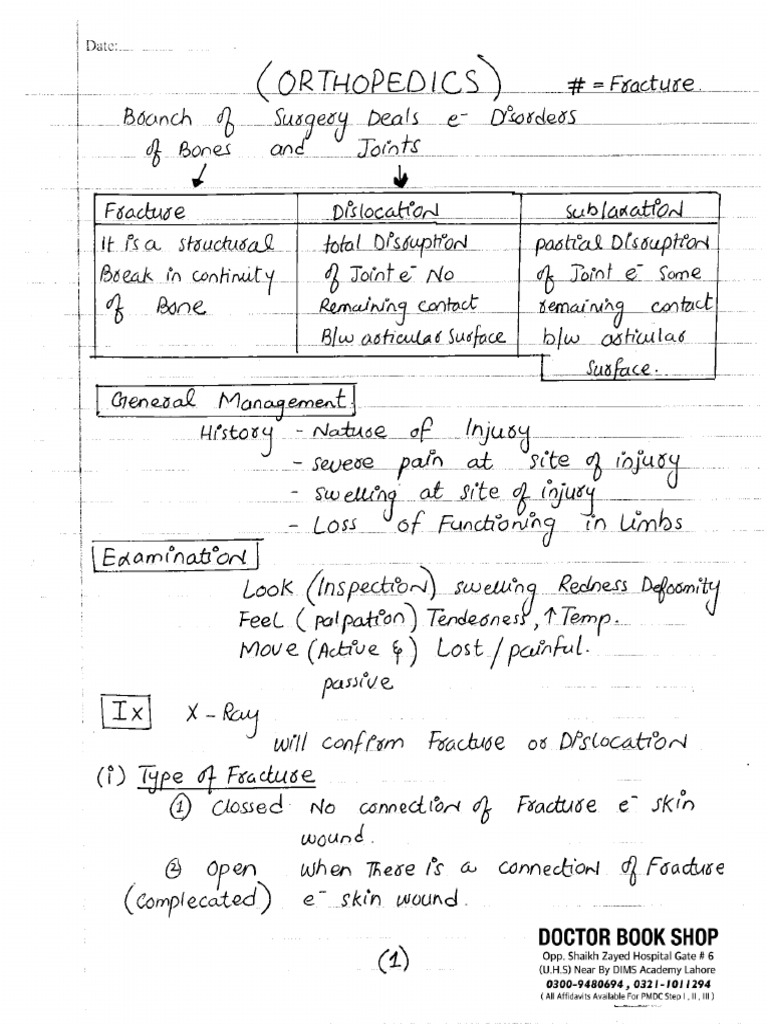 Date:
(ORTHOPEDICS) # = Fracture.
Branch of Surgery Deals e- Disorders
of Bones and Joints
Fracture
It is a structural
Break in continuity
of Bone
Dislocation
total Disruption
of Joint e- No
Remaining contact
B/w articular Surface
Sublaxation
partial Disruption
of Joint e- Some
remaining contact
b/w articular
Surface.
General Management.
History - Nature of Injury
- severe pain at site of injury
- swelling at site of injury
- Loss of Functioning in Limbs
Examination
Look (Inspection) swelling Redness Deformity
Feel (palpation) Tenderness, ↑ Temp.
Move (Active & passive) Lost / painful.
Ix X-Ray
will confirm Fracture or Dislocation
(i) Type of Fracture
① Clossed No connection of Fracture e- skin
wound.
② Open When There is a connection of Fracture
(complecated) e- skin wound.
(1)
DOCTOR BOOK SHOP
Opp. Shaikh Zayed Hospital Gate # 6
(U.H.S) Near By DIMS Academy Lahore
0300-9480694, 0321-1011294
(All Affidavits Available For PMDC Step I, II, III)